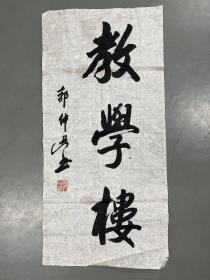 教學樓
郭仲選書